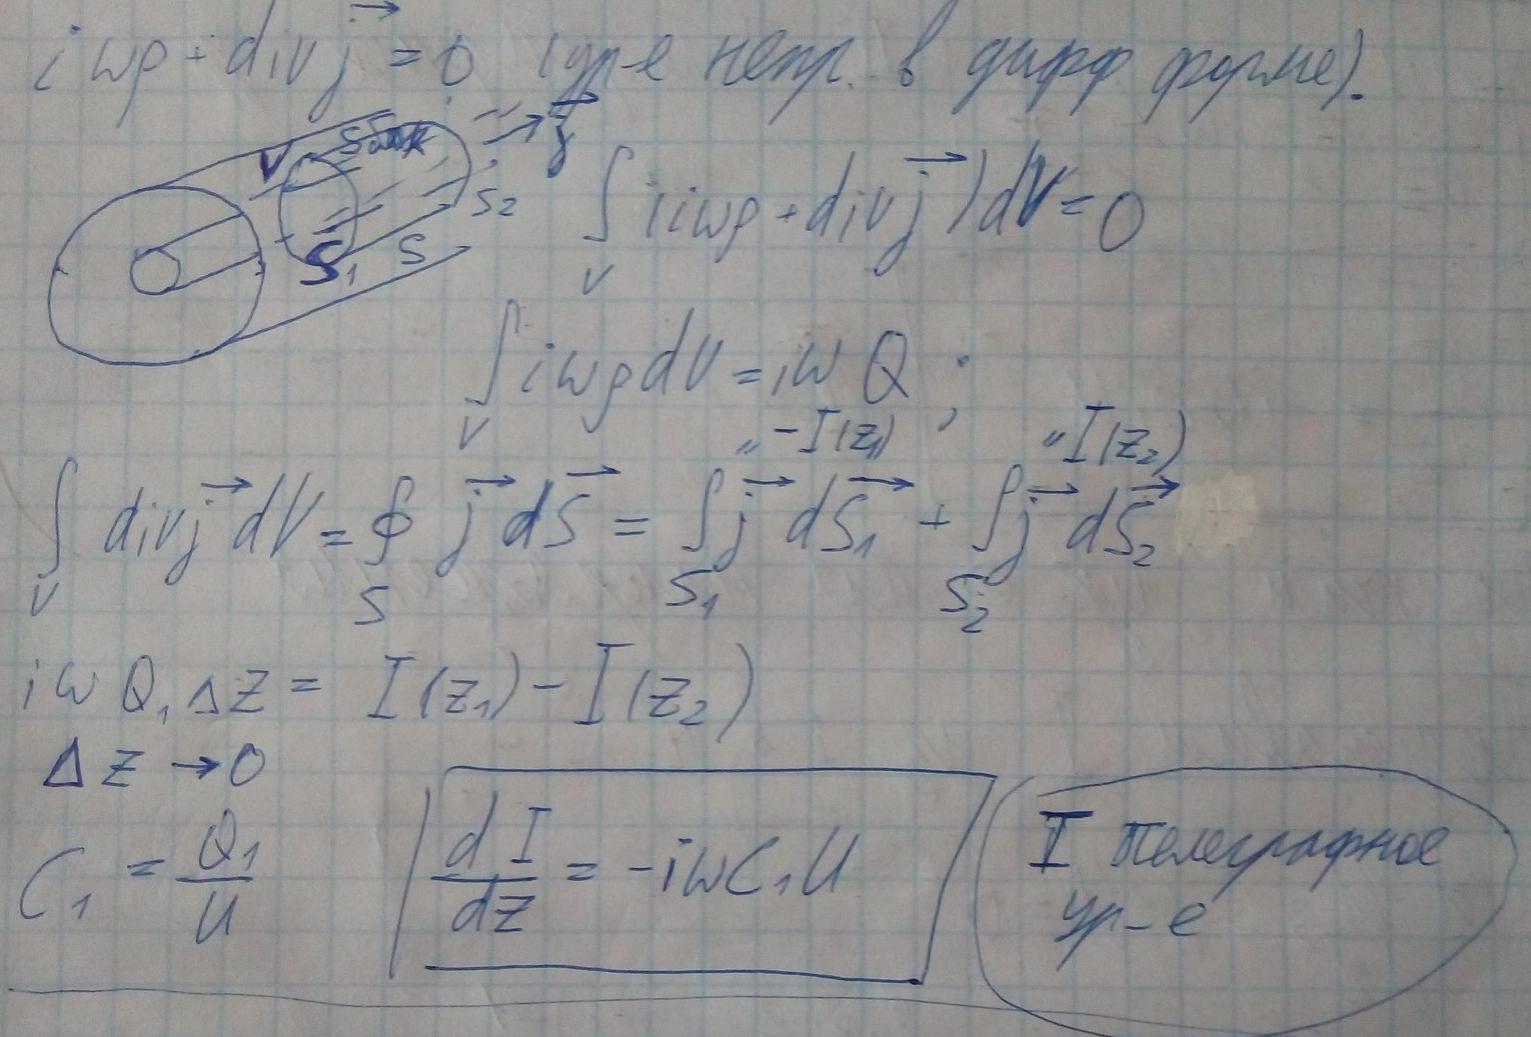 iωρ + div j⃗ = 0 (ур-е непр. в дифф форме).
V Sбок j⃗
S₂
S₁ S
∫ᵥ (iωρ + div j⃗) dV = 0
∫ᵥ iωρ dV = iω Q ;
" -I(z₁) " I(z₂)
∫ᵥ div j⃗ dV = ∮ₛ j⃗ dS⃗ = ∫_S₁ j⃗ dS⃗₁ + ∫_S₂ j⃗ dS⃗₂
iω Q₁ Δz = I(z₁) - I(z₂)
Δz → 0
C₁ = Q₁/U dI/dz = -iωC₁U I телеграфное
ур-е